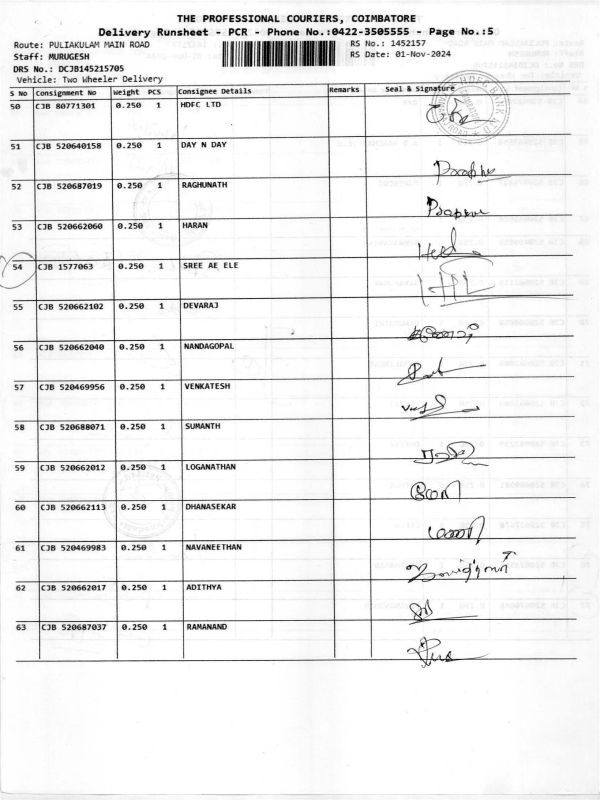 THE PROFESSIONAL COURIERS, COIMBATORE
Delivery Runsheet - PCR - Phone No.:0422-3505555 - Page No.:5
Route: PULIAKULAM MAIN ROAD RS No.: 1452157
Staff: MURUGESH RS Date: 01-Nov-2024
DRS No.: DCJB145215705
Vehicle: Two Wheeler Delivery
S No Consignment No Weight PCS Consignee Details Remarks Seal & Signature
50 CJB 80771301 0.250 1 HDFC LTD
51 CJB 520640158 0.250 1 DAY N DAY
52 CJB 520687019 0.250 1 RAGHUNATH
53 CJB 520662060 0.250 1 HARAN
54 CJB 1577063 0.250 1 SREE AE ELE
55 CJB 520662102 0.250 1 DEVARAJ
56 CJB 520662040 0.250 1 NANDAGOPAL
57 CJB 520469956 0.250 1 VENKATESH
58 CJB 520688071 0.250 1 SUMANTH
59 CJB 520662012 0.250 1 LOGANATHAN
60 CJB 520662113 0.250 1 DHANASEKAR
61 CJB 520469983 0.250 1 NAVANEETHAN
62 CJB 520662017 0.250 1 ADITHYA
63 CJB 520687037 0.250 1 RAMANAND